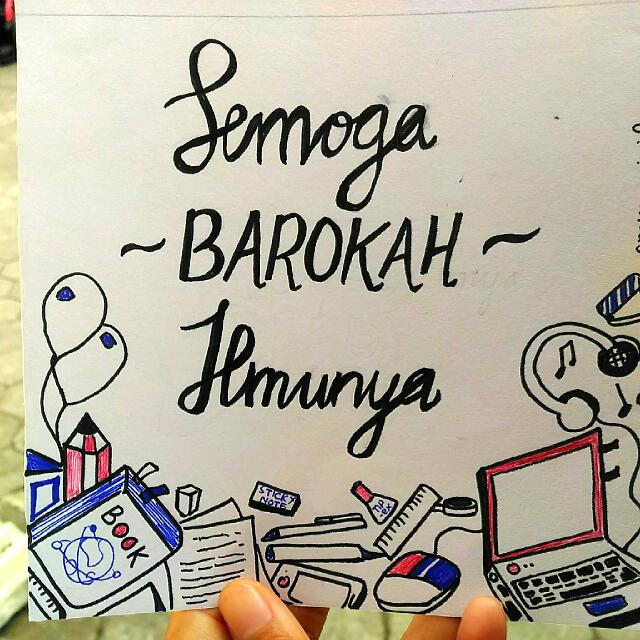 Semoga
~ BAROKAH ~
Ilmunya
BOOK
STICKY
NOTE
TIP
EX